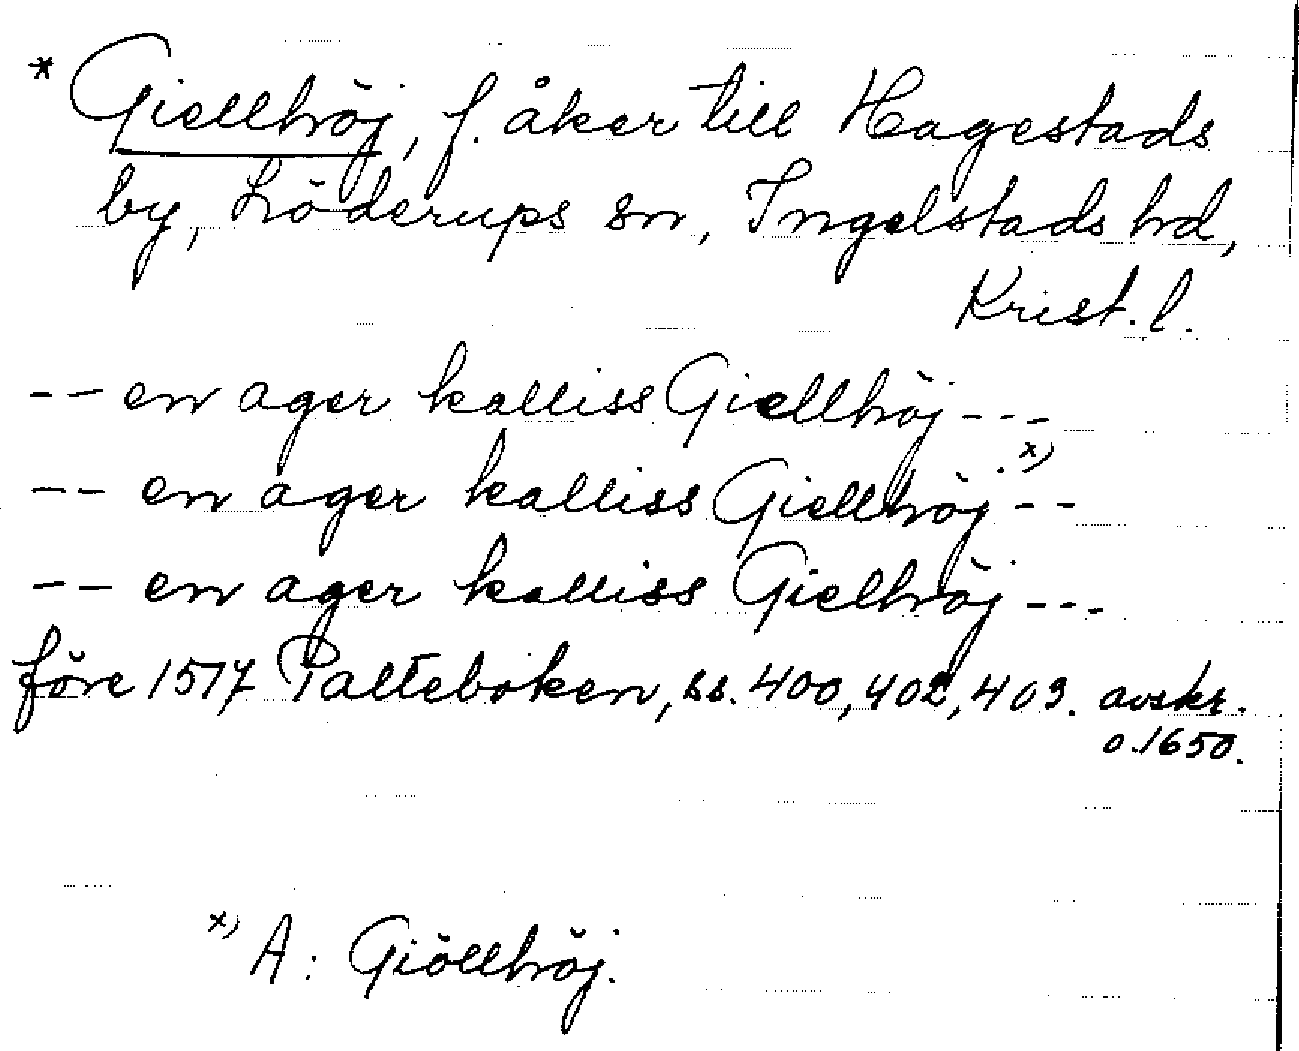 * Giellhöj, f. åker till Hagestads
by, Löderups sn, Ingelstads hd,
Krist. l.
-- en ager kalliss Giellhöj ---
-- en ager kalliss Giellhöj x) --
-- en ager kalliss Gielhöj ---
före 1517 Palteboken, ss. 400, 402, 403. avskr.
o. 1650.
x) A: Giöllhöj.